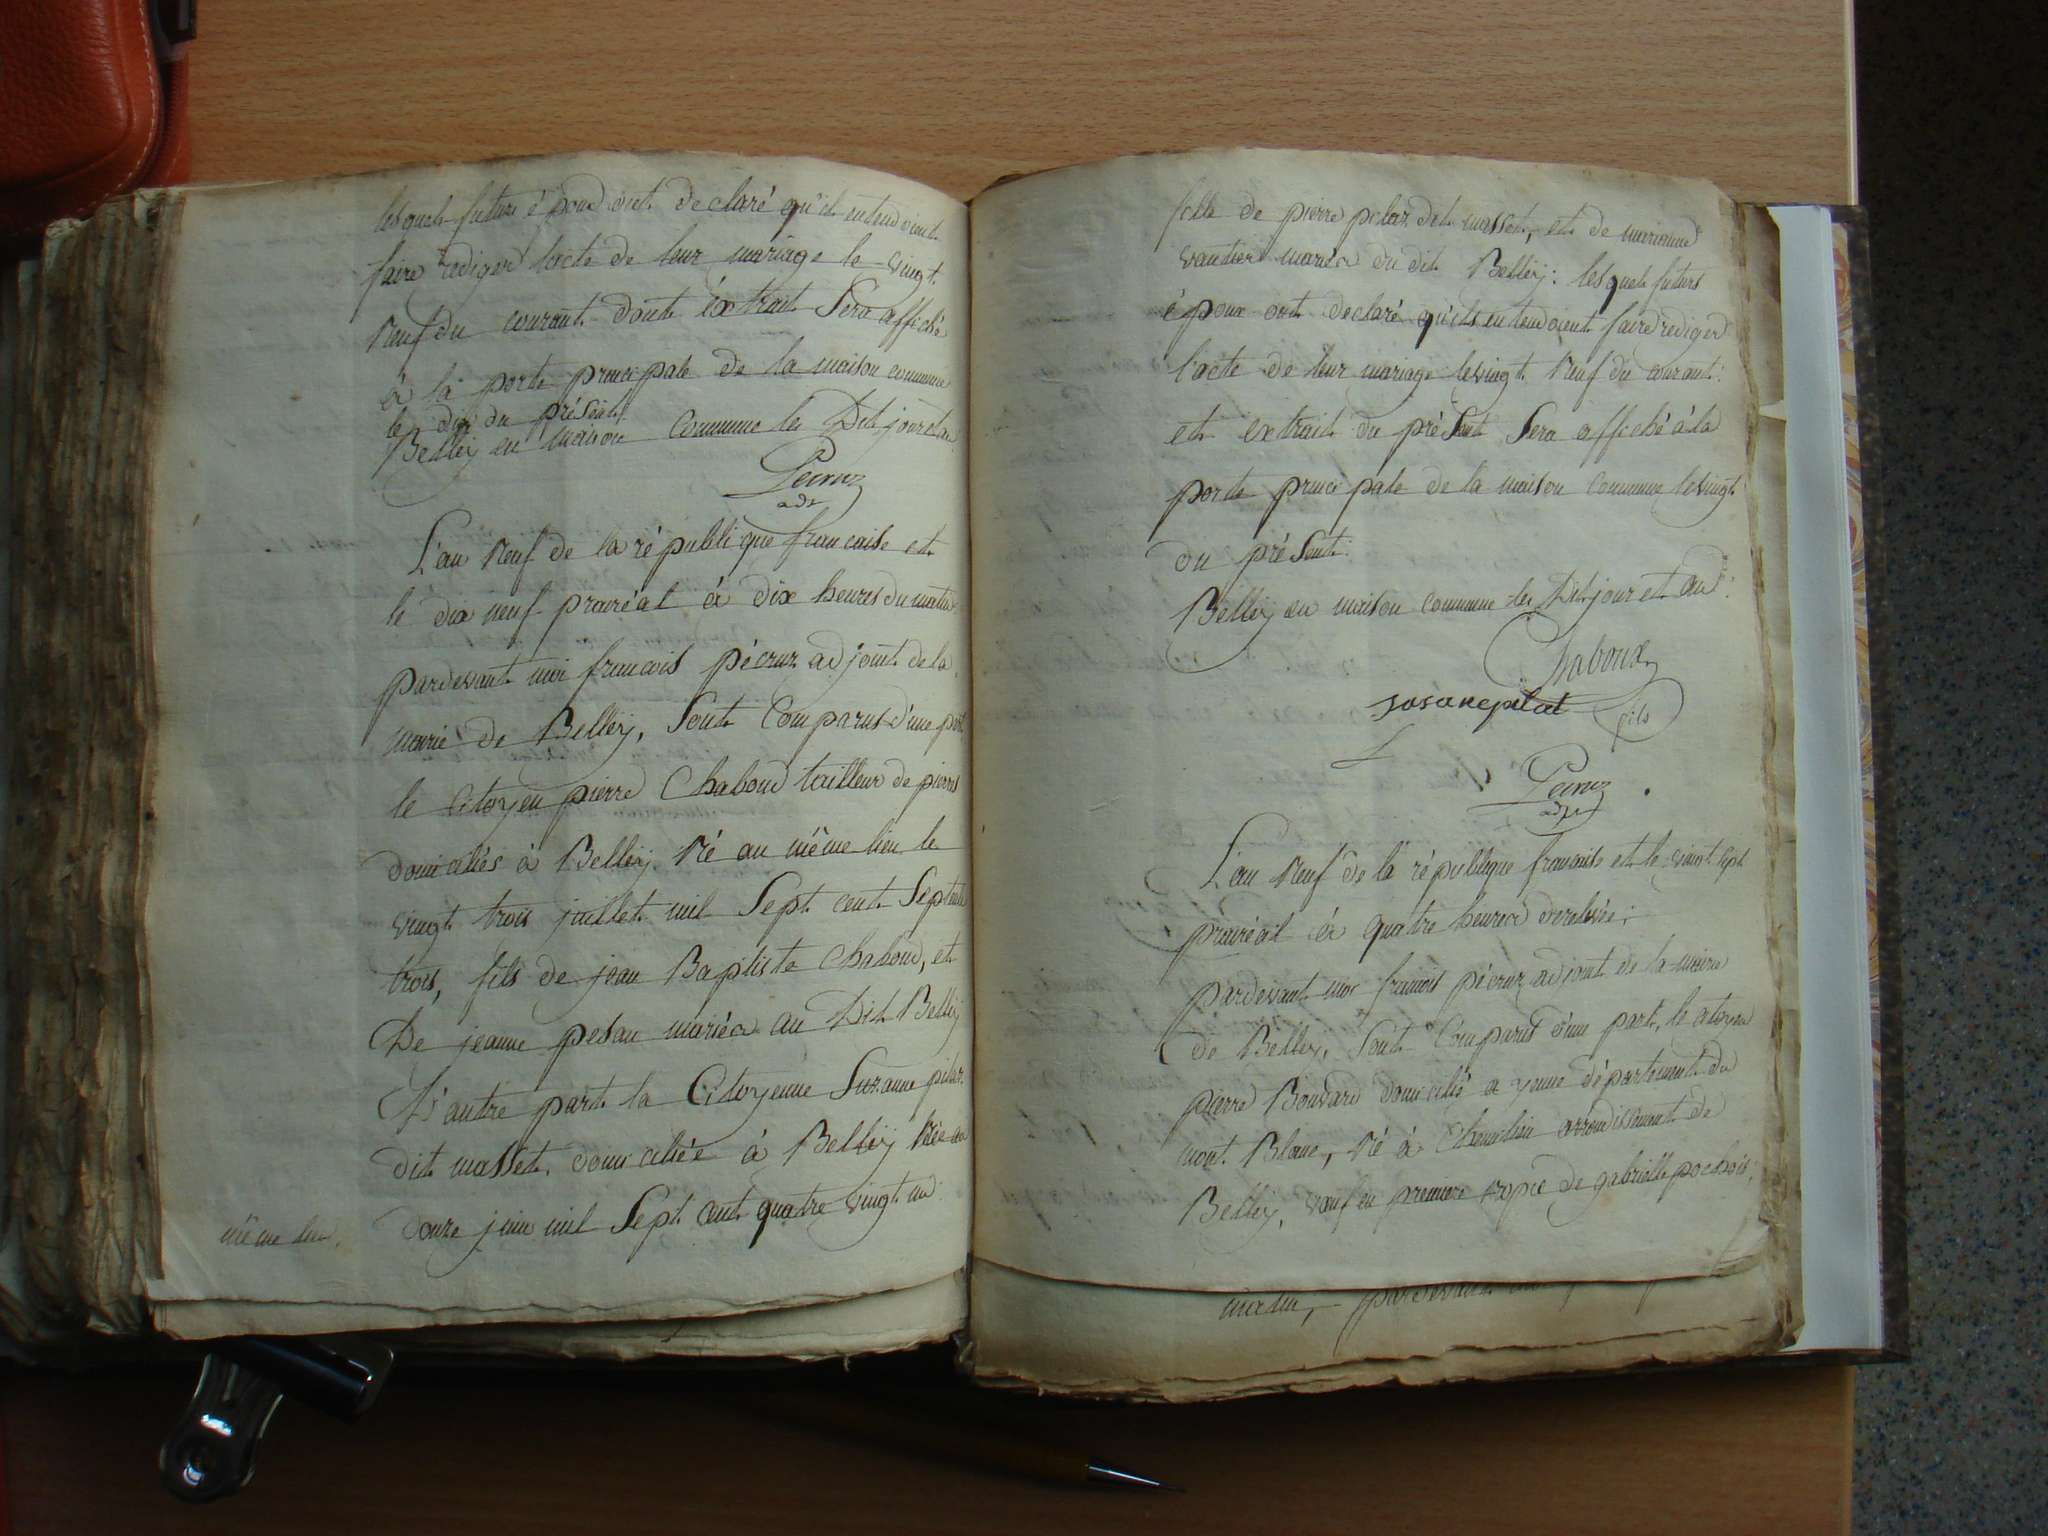 lesquels futurs époux ont déclaré qu'ils entendoient
faire rediger l'acte de leur mariage le vingt
neuf du courant dont éxtrait Sera affiché
à la porte principale de la maison commune
le dix du présent
Belley en maison commune les Dit jour et an
Pecruz
adt
L'an neuf de la république francaise et
le dix neuf prairéal à dix heures du matin
pardevant moi francois pécruz adjoint de la
mairie de Belley, Sont Comparus d'une part
le Citoyen pierre Chaboud tailleur de pierres
domiciliés à Belley né au même lieu le
vingt trois juillet mil Sept cent Septante
trois, fils de jean Baptiste Chaboud, et
De jeanne pesan mariés au Dit Belley
D'autre part la Citoyenne Suzanne pilaz
dit masset domiciliée à Belley née au
même lieu. douze juin mil Sept cent quatre vingt un
fille de pierre pilaz dit masset, et de marianne
vautier mariés du dit Belley: lesquels futurs
époux ont déclaré qu'ils entendoient faire rediger
l'acte de leur mariage le vingt neuf du courant
et extrait du présent Sera affiché à la
porte principale de la maison commune le vingt
du présent.
Belley en maison commune les Dit jour et an
Chaboux
fils
susanepilat
Pecruz
adjt
L'an neuf de la république francaise et le vingt sept
prairéal à quatre heures de relevée;
pardevant moi francois pécruz adjoint de la mairie
de Belley, Sont Comparus d'une part, le citoyen
pierre Bouvard domicilié a yenne département du
mont Blanc, né à Chemilieu arrondissement de
Belley, veuf en premiere de gabrielle pochois,
matin, pardevant